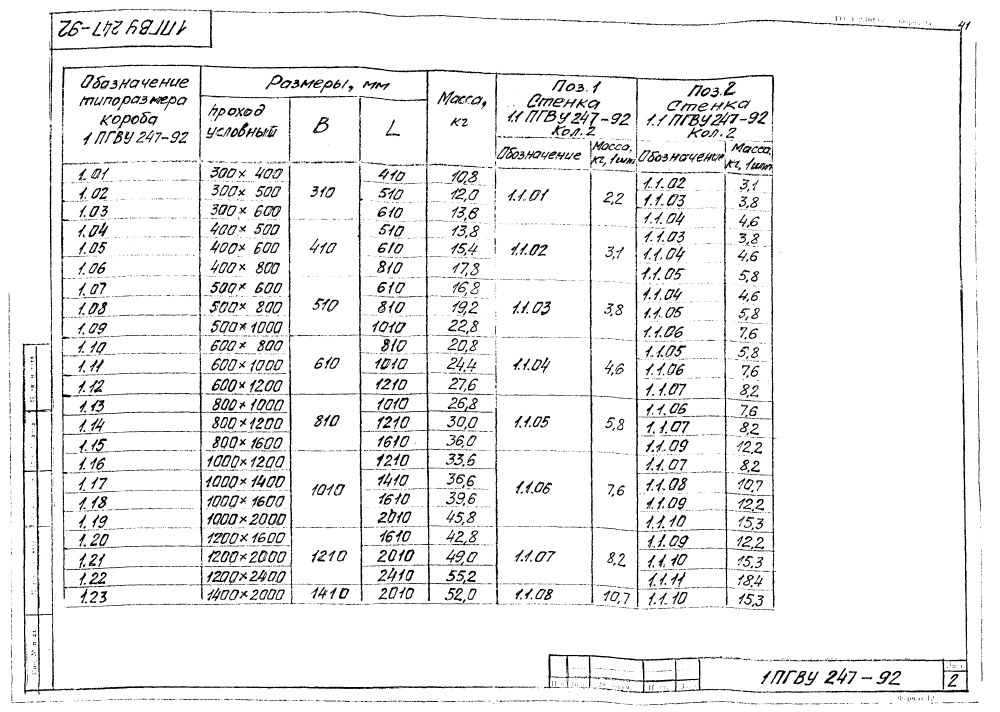 1ПГВУ 247-92
41
Обозначение типоразмера короба 1 ПГВУ 247-92
Размеры, мм
проход условный
В
L
Масса, кг
Поз. 1 Стенка 1.1 ПГВУ 247-92 Кол. 2
Обозначение
Масса, кг, 1шт
Поз. 2 Стенка 1.1 ПГВУ 247-92 Кол. 2
Обозначение
Масса, кг, 1шт
1.01 300×400 410 10,8 1.1.02 3,1
1.02 300×500 310 510 12,0 1.1.01 2,2 1.1.03 3,8
1.03 300×600 610 13,6 1.1.04 4,6
1.04 400×500 510 13,8 1.1.03 3,8
1.05 400×600 410 610 15,4 1.1.02 3,1 1.1.04 4,6
1.06 400×800 810 17,8 1.1.05 5,8
1.07 500×600 610 16,8 1.1.04 4,6
1.08 500×800 510 810 19,2 1.1.03 3,8 1.1.05 5,8
1.09 500×1000 1010 22,8 1.1.06 7,6
1.10 600×800 810 20,8 1.1.05 5,8
1.11 600×1000 610 1010 24,4 1.1.04 4,6 1.1.06 7,6
1.12 600×1200 1210 27,6 1.1.07 8,2
1.13 800×1000 1010 26,8 1.1.06 7,6
1.14 800×1200 810 1210 30,0 1.1.05 5,8 1.1.07 8,2
1.15 800×1600 1610 36,0 1.1.09 12,2
1.16 1000×1200 1210 33,6 1.1.07 8,2
1.17 1000×1400 1010 1410 36,6 1.1.06 7,6 1.1.08 10,7
1.18 1000×1600 1610 39,6 1.1.09 12,2
1.19 1000×2000 2010 45,8 1.1.10 15,3
1.20 1200×1600 1610 42,8 1.1.09 12,2
1.21 1200×2000 1210 2010 49,0 1.1.07 8,2 1.1.10 15,3
1.22 1200×2400 2410 55,2 1.1.11 18,4
1.23 1400×2000 1410 2010 52,0 1.1.08 10,7 1.1.10 15,3
1ПГВУ 247-92
Лист
2